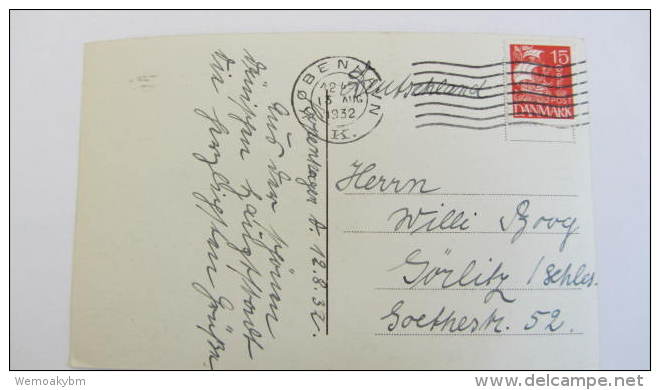 Kopenhagen d. 12.8.32.
Aus der schönen
dänischen Hauptstadt
die herzlichsten Grüße
KØBENHAVN
AUG
1932
K.
Deutschland
15
POST
DANMARK
Herrn
Willi
Görlitz / Schles.
Goethestr. 52.
Wemoakybm
delcampe.net